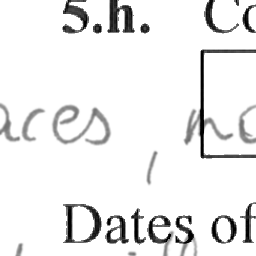 5.h. Co
aces, no
Dates of